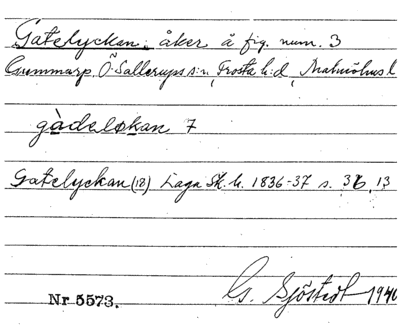 "Gatelyckan" åker å fig. num. 3
Gummarp, Ö. Sallerups s:n, Frosta h:d, Malmöhus l
gàdelokan 7
Gatelyckan (18) Laga Sk. h. 1836-37 s. 36, 13
Nr 5573. G. Sjöstedt 1940